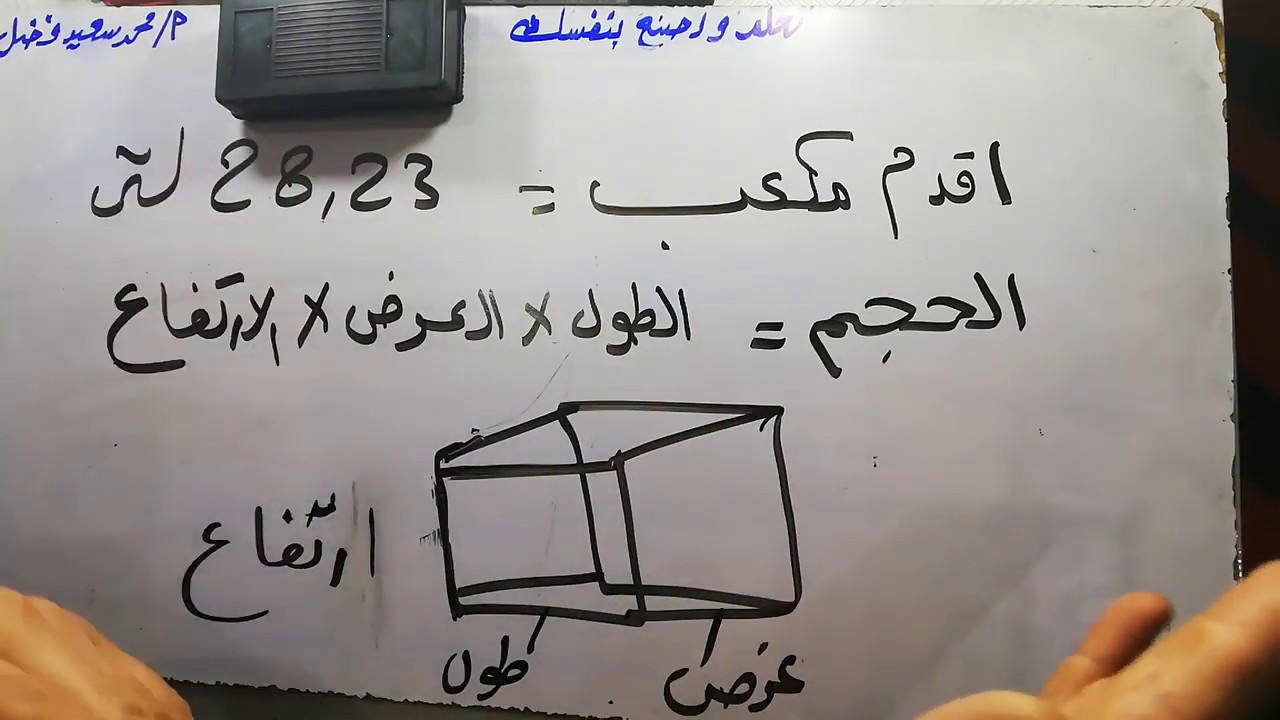 تعلم واصنع بنفسك م/محمد سعيد فضل
1قدم مكعب = 28,23 لتر
الحجم = الطول X العرض X الارتفاع
ارتفاع
طول
عرض